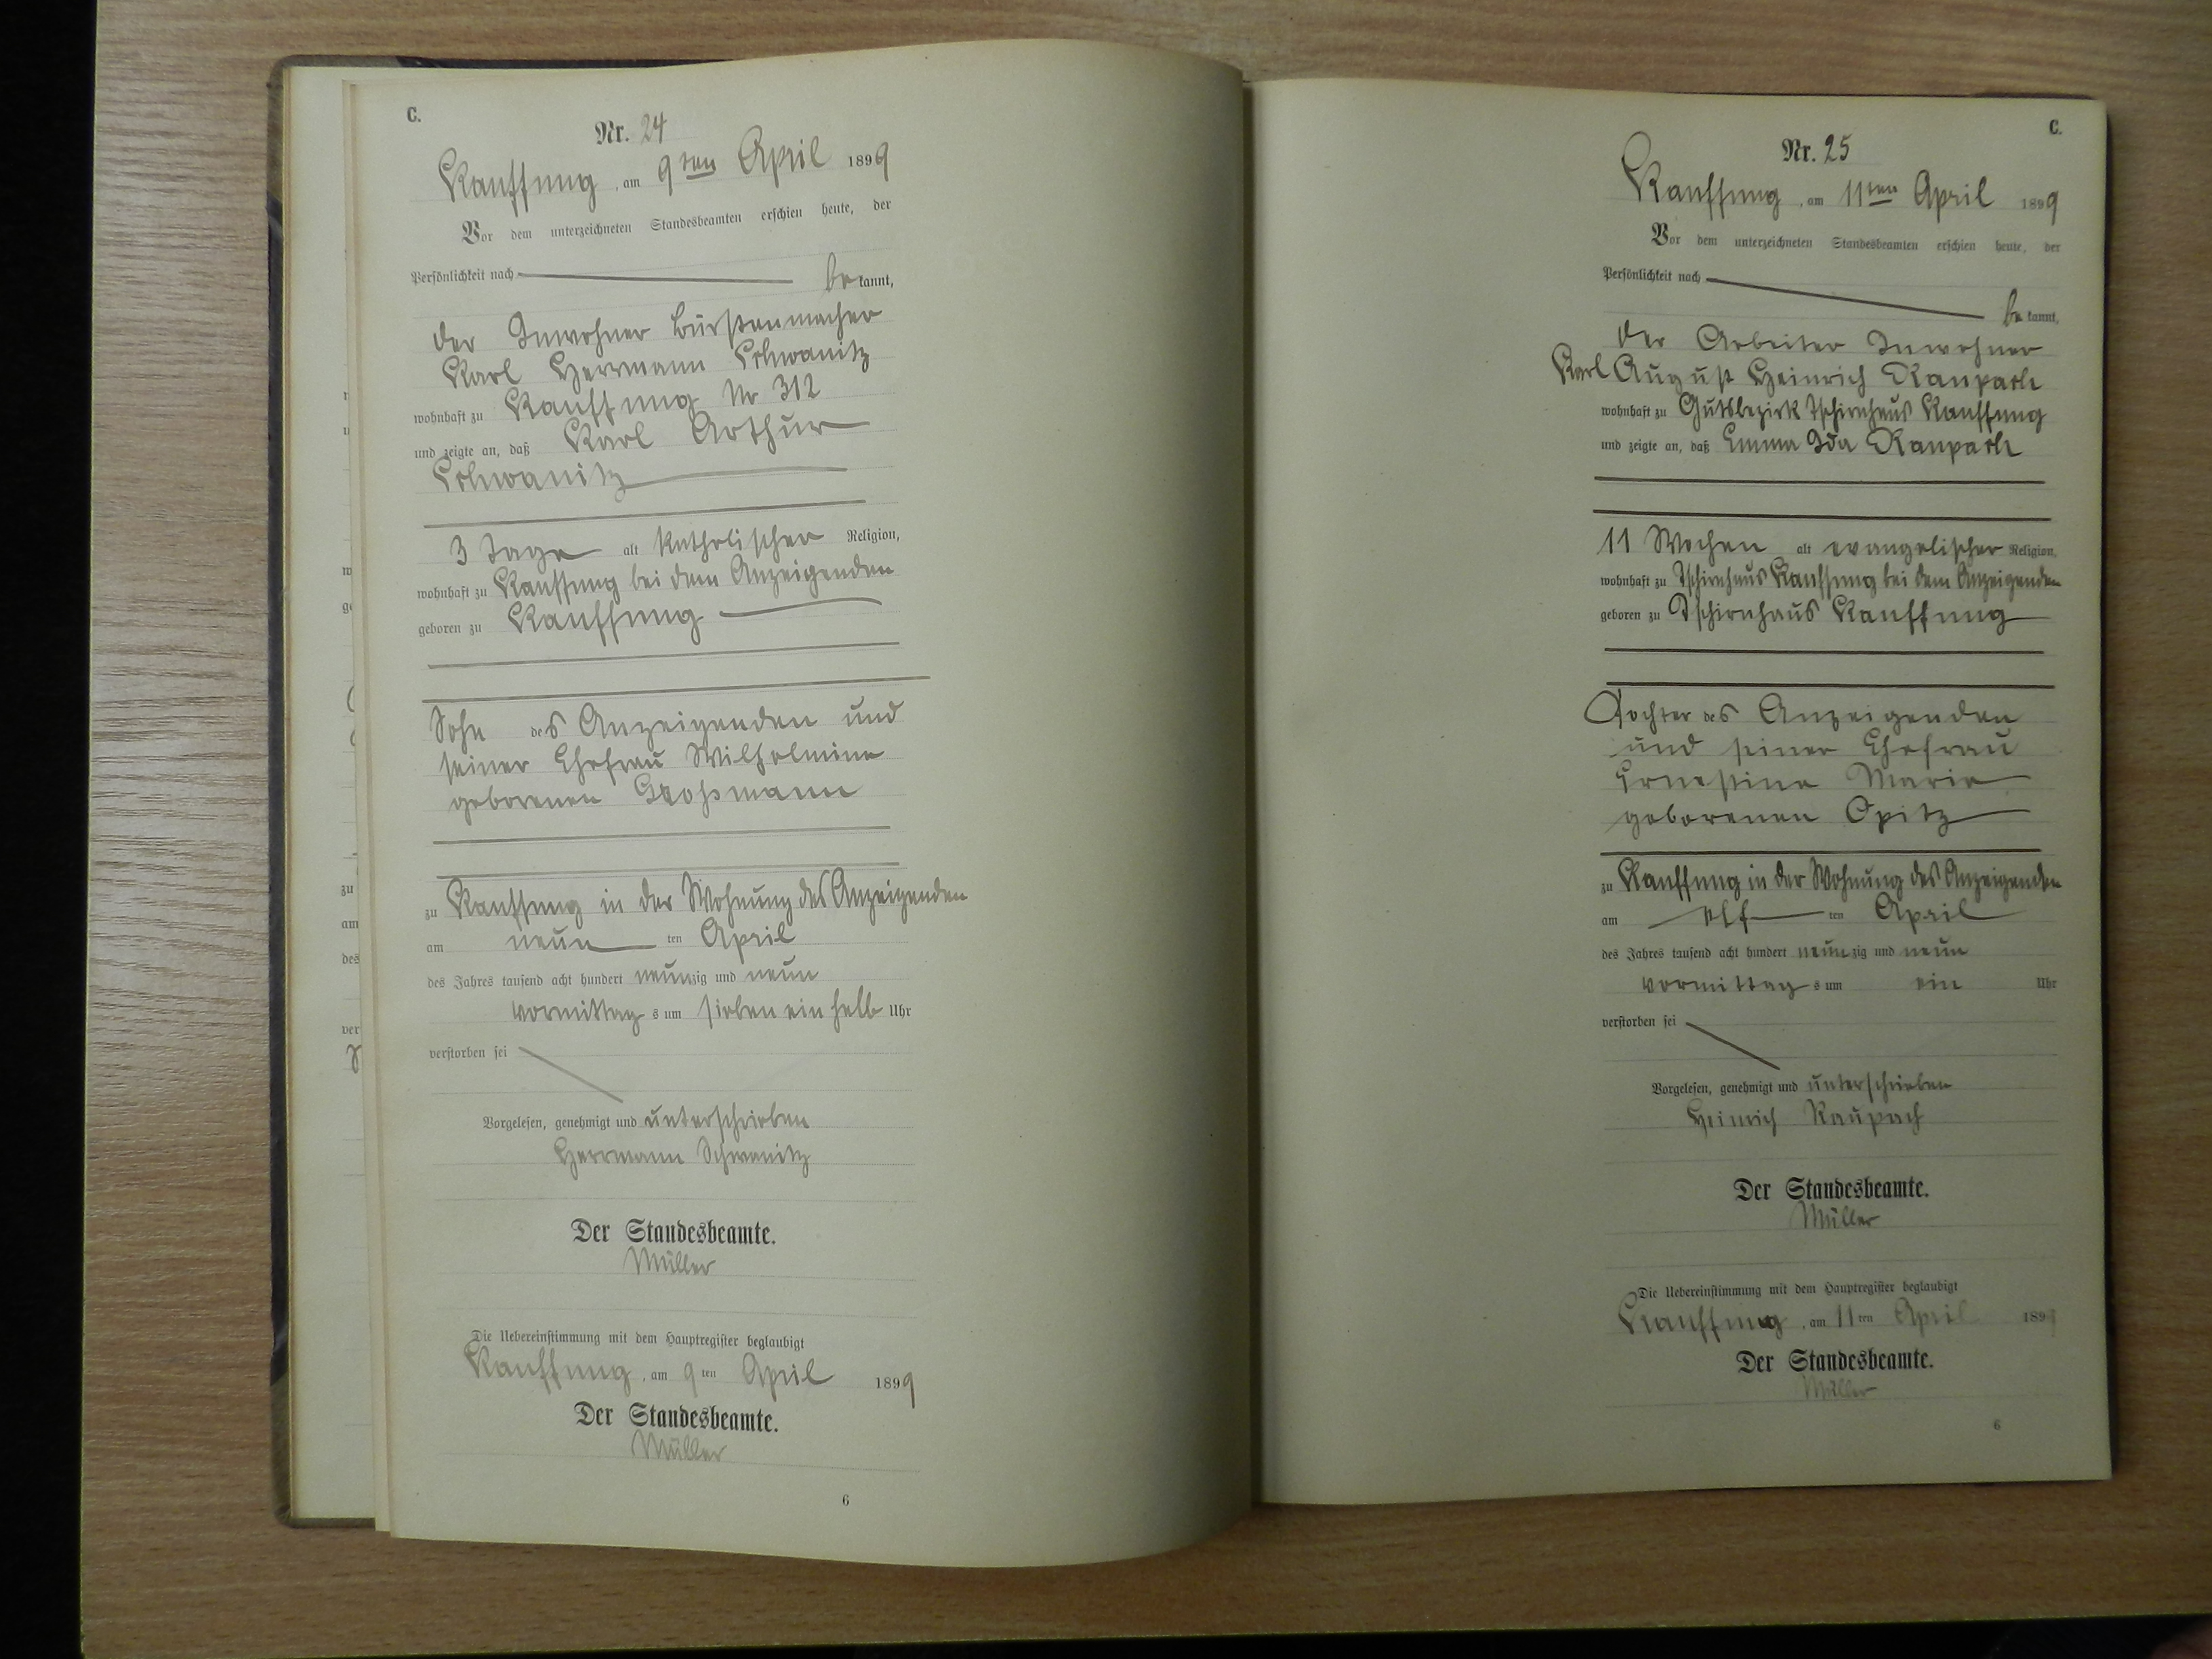 C.
Nr. 24
Kauffung, am 9ten April 1899
Vor dem unterzeichneten Standesbeamten erschien heute, der
Persönlichkeit nach be kannt,
der Inwohner Bürstenmacher
Karl Herrmann Schwanitz
wohnhaft zu Kauffung Nr 312
und zeigte an, daß Karl Arthur
Schwanitz
3 Tage alt katholischer Religion,
wohnhaft zu Kauffung bei dem Anzeigenden
geboren zu Kauffung
Sohn des Anzeigenden und
seiner Ehefrau Wilhelmine
geborenen Großmann
zu Kauffung in der Wohnung des Anzeigenden
am neun ten April
des Jahres tausend acht hundert neunzig und neun
vormittag s um sieben ein halb Uhr
verstorben sei
Vorgelesen, genehmigt und unterschrieben
Herrmann Schwanitz
Der Standesbeamte.
Müller
Die Uebereinstimmung mit dem Hauptregister beglaubigt
Kauffung, am 9 ten April 1899
Der Standesbeamte.
Müller
6
C.
Nr. 25
Kauffung, am 11ten April 1899
Vor dem unterzeichneten Standesbeamten erschien heute, der
Persönlichkeit nach be kannt,
der Arbeiter Inwohner
Karl August Heinrich Raupach
wohnhaft zu Gutsbezirk Tschirnhaus Kauffung
und zeigte an, daß Emma Ida Raupach
11 Wochen alt evangelischer Religion,
wohnhaft zu Tschirnhaus Kauffung bei dem Anzeigenden
geboren zu Tschirnhaus Kauffung
Tochter des Anzeigenden
und seiner Ehefrau
Ernestine Marie
geborenen Opitz
zu Kauffung in der Wohnung des Anzeigenden
am elf ten April
des Jahres tausend acht hundert neunzig und neun
vormittag s um ein Uhr
verstorben sei
Vorgelesen, genehmigt und unterschrieben
Heinrich Raupach
Der Standesbeamte.
Müller
Die Uebereinstimmung mit dem Hauptregister beglaubigt
Kauffung, am 11 ten April 1899
Der Standesbeamte.
Müller
6